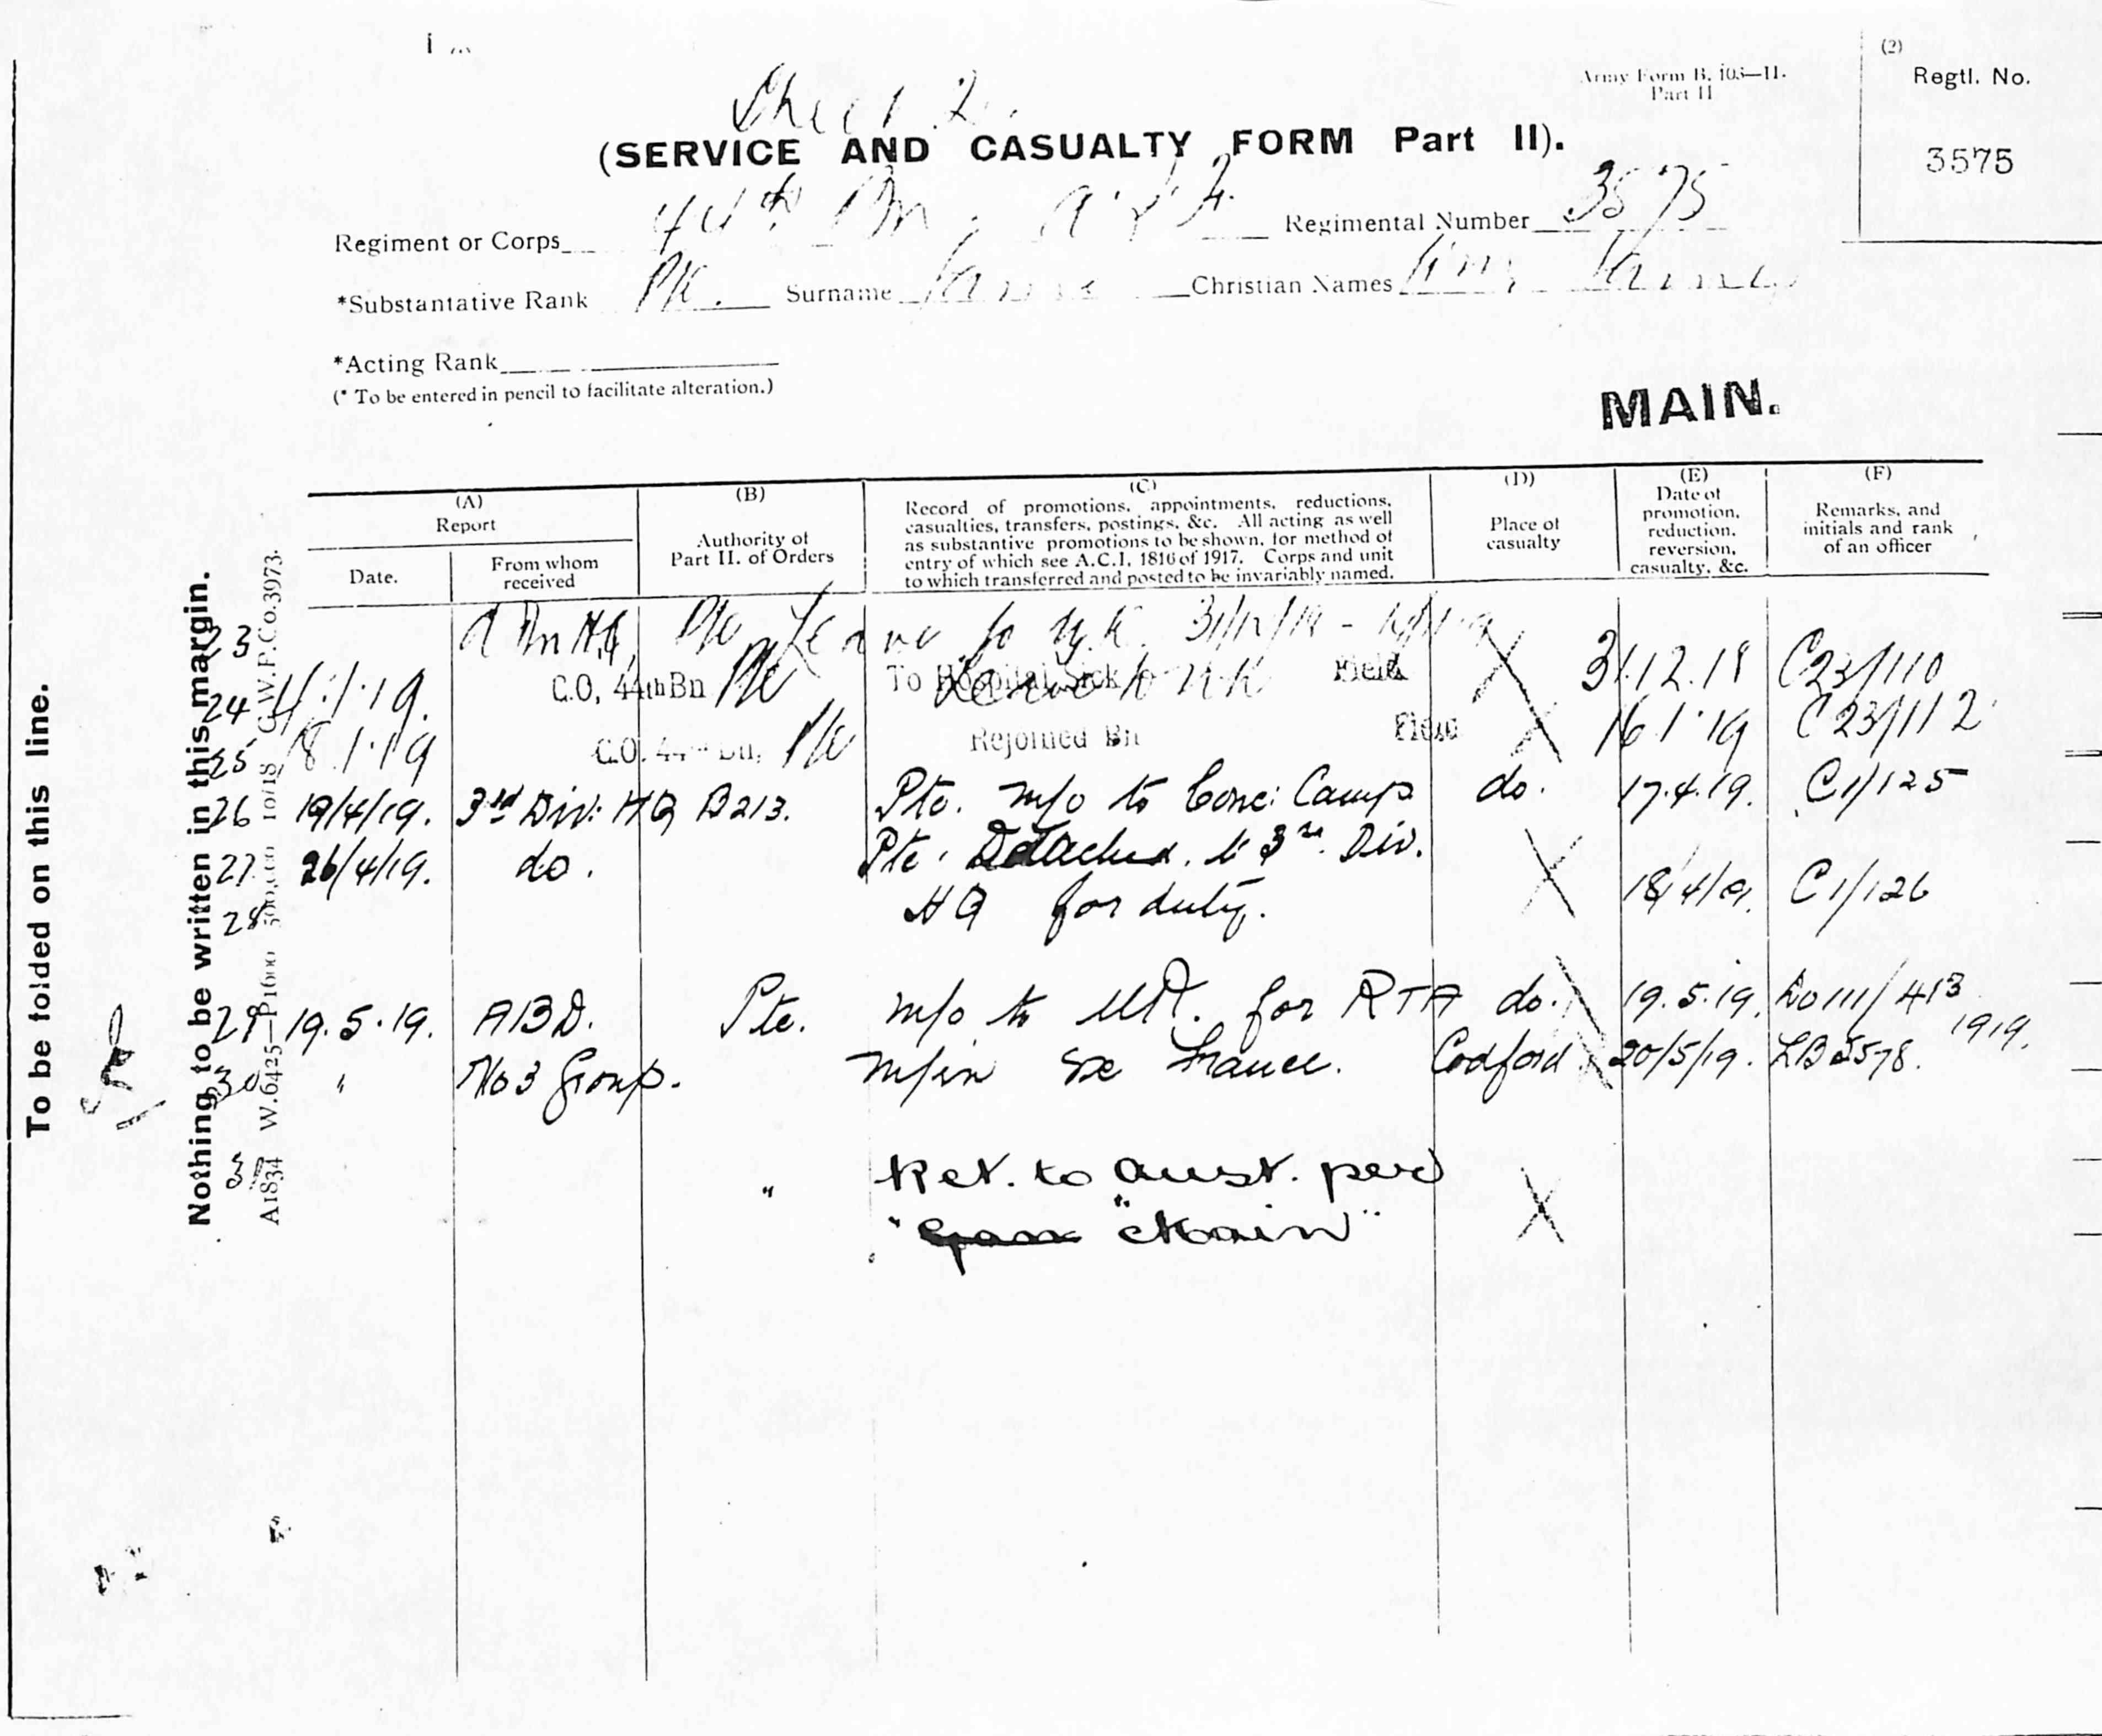 Sheet 2.
(2)
Army Form B. 103—II.
Part II
Regtl. No.
3575
(SERVICE AND CASUALTY FORM Part II).
Regiment or Corps 44th Bn. A.I.F. Regimental Number 3575
*Substantative Rank Pte. Surname Christian Names
*Acting Rank
(* To be entered in pencil to facilitate alteration.)
MAIN.
(A) Report
Date.
From whom received
(B) Authority of Part II. of Orders
(C) Record of promotions, appointments, reductions, casualties, transfers, postings, &c. All acting as well as substantive promotions to be shown, for method of entry of which see A.C.I. 1816 of 1917. Corps and unit to which transferred and posted to be invariably named.
(D) Place of casualty
(E) Date of promotion, reduction, reversion, casualty, &c.
(F) Remarks, and initials and rank of an officer
23 Leave to U.K.
24 4.1.19. C.O, 44th Bn Pte To Hospital Sick Leave to UK Field 31.12.18 C23/110
25 18.1.19 C.O. 44th Bn, Pte Rejoined Bn Field 16.1.19 C23/112
26 19/4/19. 3rd Div: HQ B213. Pte. m/o to Conc: Camp do. 17.4.19. C1/125
27 26/4/19. do. Pte. Detached. to 3rd. Div.
28 HQ for duty. 18/4/19. C1/126
29 19.5.19. ABD. Pte. m/o to UK. for RTA do. 19.5.19. DO111/413
1919.
30 " No 3 Group. m/in ex France. Codford. 20/5/19. LB5578.
31 " Ret. to Aust. per
"Main"
To be folded on this line.
Nothing to be written in this margin.
A1834 W.6425—P1600 500,000 10/18 G.W.P.Co.3973.